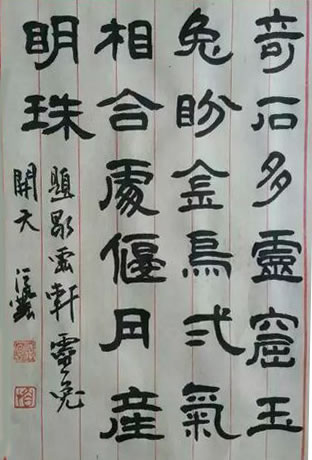 奇石多靈窟玉
兔盼金烏弍氣
相合處偃月産
明珠
題雲軒靈兔
開天